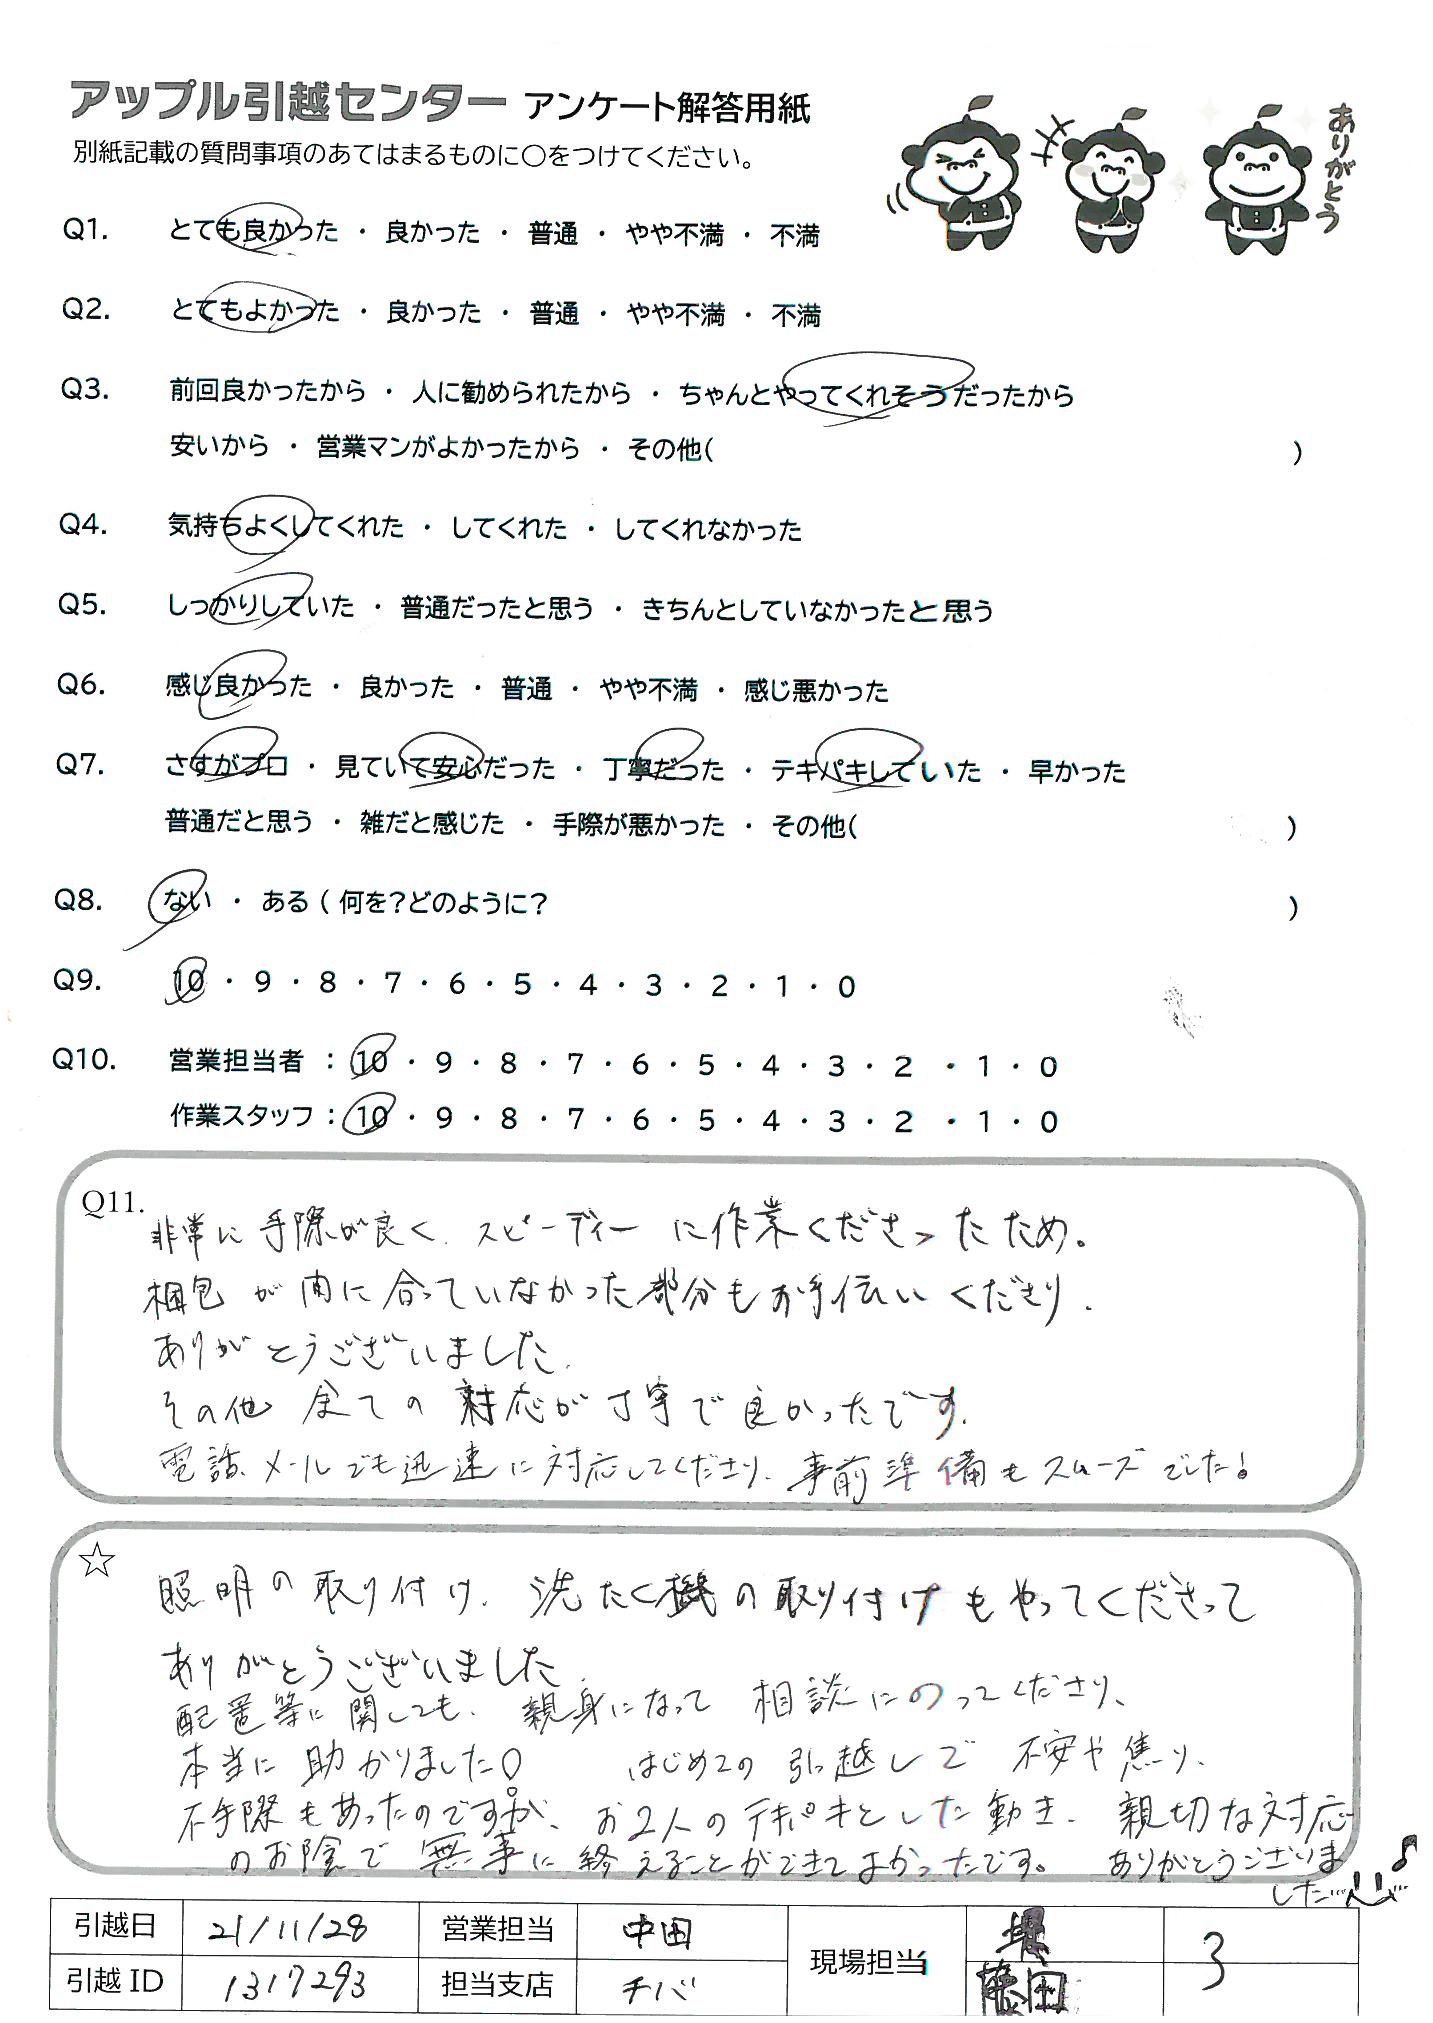 アップル引越センター アンケート解答用紙
ありがとう
別紙記載の質問事項のあてはまるものに○をつけてください。
Q1. とても良かった ・ 良かった ・ 普通 ・ やや不満 ・ 不満
Q2. とてもよかった ・ 良かった ・ 普通 ・ やや不満 ・ 不満
Q3. 前回良かったから ・ 人に勧められたから ・ ちゃんとやってくれそうだったから
安いから ・ 営業マンがよかったから ・ その他( )
Q4. 気持ちよくしてくれた ・ してくれた ・ してくれなかった
Q5. しっかりしていた ・ 普通だったと思う ・ きちんとしていなかったと思う
Q6. 感じ良かった ・ 良かった ・ 普通 ・ やや不満 ・ 感じ悪かった
Q7. さすがプロ ・ 見ていて安心だった ・ 丁寧だった ・ テキパキしていた ・ 早かった
普通だと思う ・ 雑だと感じた ・ 手際が悪かった ・ その他( )
Q8. ない ・ ある ( 何を?どのように? )
Q9. 10 ・ 9 ・ 8 ・ 7 ・ 6 ・ 5 ・ 4 ・ 3 ・ 2 ・ 1 ・ 0
Q10. 営業担当者 : 10 ・ 9 ・ 8 ・ 7 ・ 6 ・ 5 ・ 4 ・ 3 ・ 2 ・ 1 ・ 0
作業スタッフ : 10 ・ 9 ・ 8 ・ 7 ・ 6 ・ 5 ・ 4 ・ 3 ・ 2 ・ 1 ・ 0
Q11.
非常に手際が良く、スピーディーに作業くださったため。
梱包が間に合っていなかった部分もお手伝いくださり、
ありがとうございました。
その他 全ての対応が丁寧で良かったです。
電話、メールでも迅速に対応してくださり、事前準備もスムーズでした!
☆
照明の取り付け、洗たく機の取り付けもやってくださって
ありがとうございました
配置等に関しても、親身になって相談にのってくださり、
本当に助かりました! はじめての引越しで不安や焦り、
不手際もあったのですが、お2人のテキパキとした動き、親切な対応
のお陰で無事に終えることができてよかったです。 ありがとうございま
した…♪
引越日 21/11/28 営業担当 中田 現場担当 堤 3
引越ID 1317293 担当支店 チバ 藤田